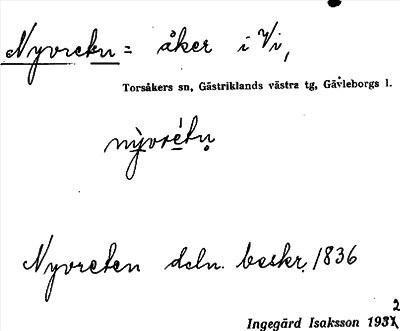 Nyvretn = åker i Vi,
Torsåkers sn, Gästriklands västra tg, Gävleborgs l.
nỳvrétn̥
Nyvreten deln. beskr. 1836
Ingegärd Isaksson 1932